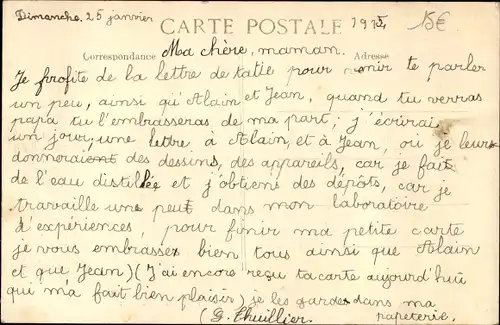 Dimanche 25 janvier
CARTE POSTALE
1915
15€
Correspondance
Adresse
Ma chère, maman.
Je profite de la lettre de tatie pour venir te parler
un peu, ainsi qu'Alain et Jean, quand tu verras
papa tu l'embrasseras de ma part; j'écrirai
un jour, une lettre à Alain, et à Jean, où je leurs
donneraient des dessins, des appareils, car je fait
de l'eau distillée et j'obtiens des dépôts, car je
travaille une peut dans mon laboratoire
d'expériences, pour finir ma petite carte
je vous embrasses bien tous ainsi que Alain
et que Jean) (J'ai encore reçu ta carte aujourd'hui
qui m'a fait bien plaisir) je les gardes dans ma
papeterie.
(G. Thuillier.